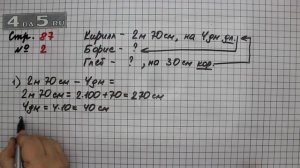 4
da5
.RU
Стр. 87
№ 2
Кирилл - 2м 70см, на 4дм дл.
Борис - ?
Глеб - ?, на 30см кор.
1) 2м 70см - 4дм =
2м 70см = 2·100+70 = 270см
4дм = 4·10 = 40см